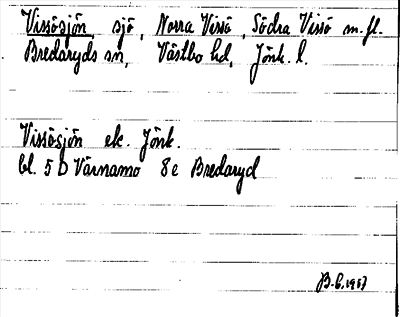 Vissösjön, sjö, Norra Vissö, Södra Vissö m.fl.
Bredaryds sn, Västbo hd, Jönk. l.
Vissösjön ek. Jönk.
bl. 5 D Värnamo 8 e Bredaryd